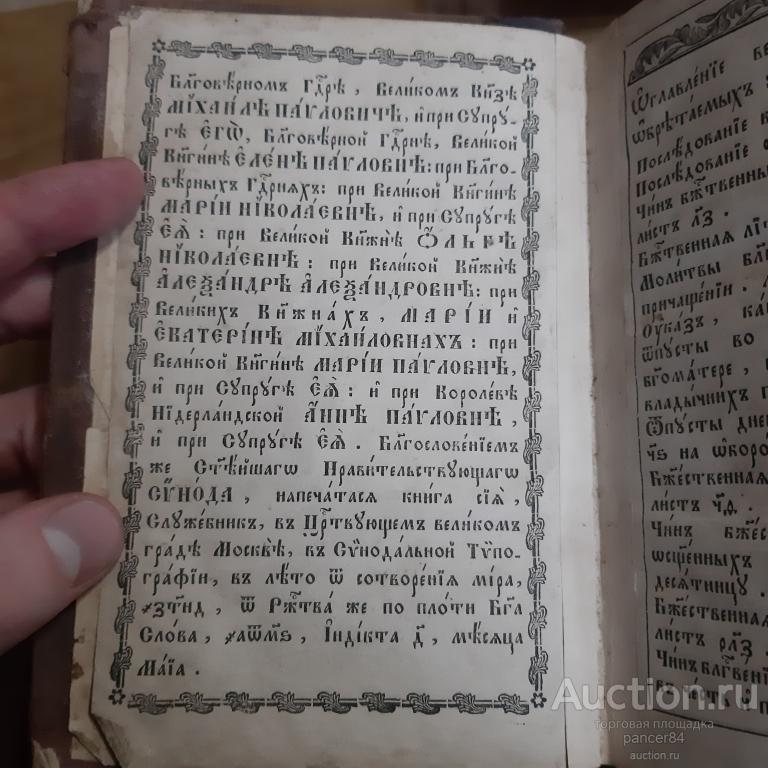 Бл҃говѣ́рномъ Гдⷭ҇рѣ, Вели́комъ Кн҃зѣ
МІХАИ́ЛѢ ПА́ѴЛОВИЧѢ, и҆ при Сꙋпрꙋ́-
гѣ Є҆ГѠ̀, Бл҃говѣ́рной Гдⷭ҇рнѣ, Вели́кой
Кн҃ги́нѣ Є҆ЛЕ́НѢ ПА́ѴЛОВНѢ: при Бл҃го-
вѣ́рныхъ Гдⷭ҇рняхъ: при Вели́кой Кн҃ги́нѣ
МАРІ́И НІКОЛА́ЕВНѢ, и҆ при Сꙋпрꙋ́гѣ
Є҆Ѧ̀: при Вели́кой Кн҃жнѣ̀ Ѻ҆́ЛЬГѢ
НІКОЛА́ЕВНѢ: при Вели́кой Кн҃жнѣ̀
А҆ЛЕѮА́НДРѢ А҆ЛЕѮА́НДРОВНѢ: при
Вели́кихъ Кн҃жна́хъ, МАРІ́И и҆
Є҆КАТЕРІ́НѢ МІХАИ́ЛОВНАХЪ: при
Вели́кой Кн҃ги́нѣ МАРІ́И ПА́ѴЛОВНѢ,
и҆ при Сꙋпрꙋ́гѣ Є҆Ѧ̀: и҆ при Короле́вѣ
Нідерла́ндской А҆́ННѢ ПА́ѴЛОВНѢ,
и҆ при Сꙋпрꙋ́гѣ Є҆Ѧ̀. Бл҃гослове́нїемъ
же Ст҃ѣ́йшагѡ Прави́тельствꙋющагѡ
СѴНО́ДА, напеча́тася кни́га сїѧ̀,
Слꙋже́бникъ, въ Црⷭ҇твꙋющемъ вели́комъ
гра́дѣ Москвѣ̀, въ Сѵнода́льной Тѵпо-
гра́фїи, въ лѣ́то ѿ сотворе́нїѧ мі́ра,
҂зтн҃д, ѿ Ржⷭ҇тва̀ же по пло́ти Бг҃а
Сло́ва, ҂аѿм҃ѕ, І҆ндїкта д҃, мⷭ҇ѣсѧца
Ма́їа.
Ѡ҆главле́нїе
ѡ҆брѣта́емыхъ
Послѣ́дованїе
Послѣ́дованїе
Чи́нъ бж҃е́ственны
ли́стъ л҃з.
Бж҃е́ственнаѧ
Моли́твы
причаще́нїи.
Оу҆ка́зъ,
ѿпꙋ́сты во
бг҃ома́тере,
влады́чнихъ
Ѿпꙋ́сты
на
Бж҃е́ственнаѧ
ли́стъ ч҃д.
Чи́нъ
ѡ҆сщ҃е́нныхъ
десѧ́тницꙋ.
Бж҃е́ственнаѧ
ли́стъ рл҃з.
Чи́нъ
Auction.ru
торговая площадка
pancer84
auction.ru